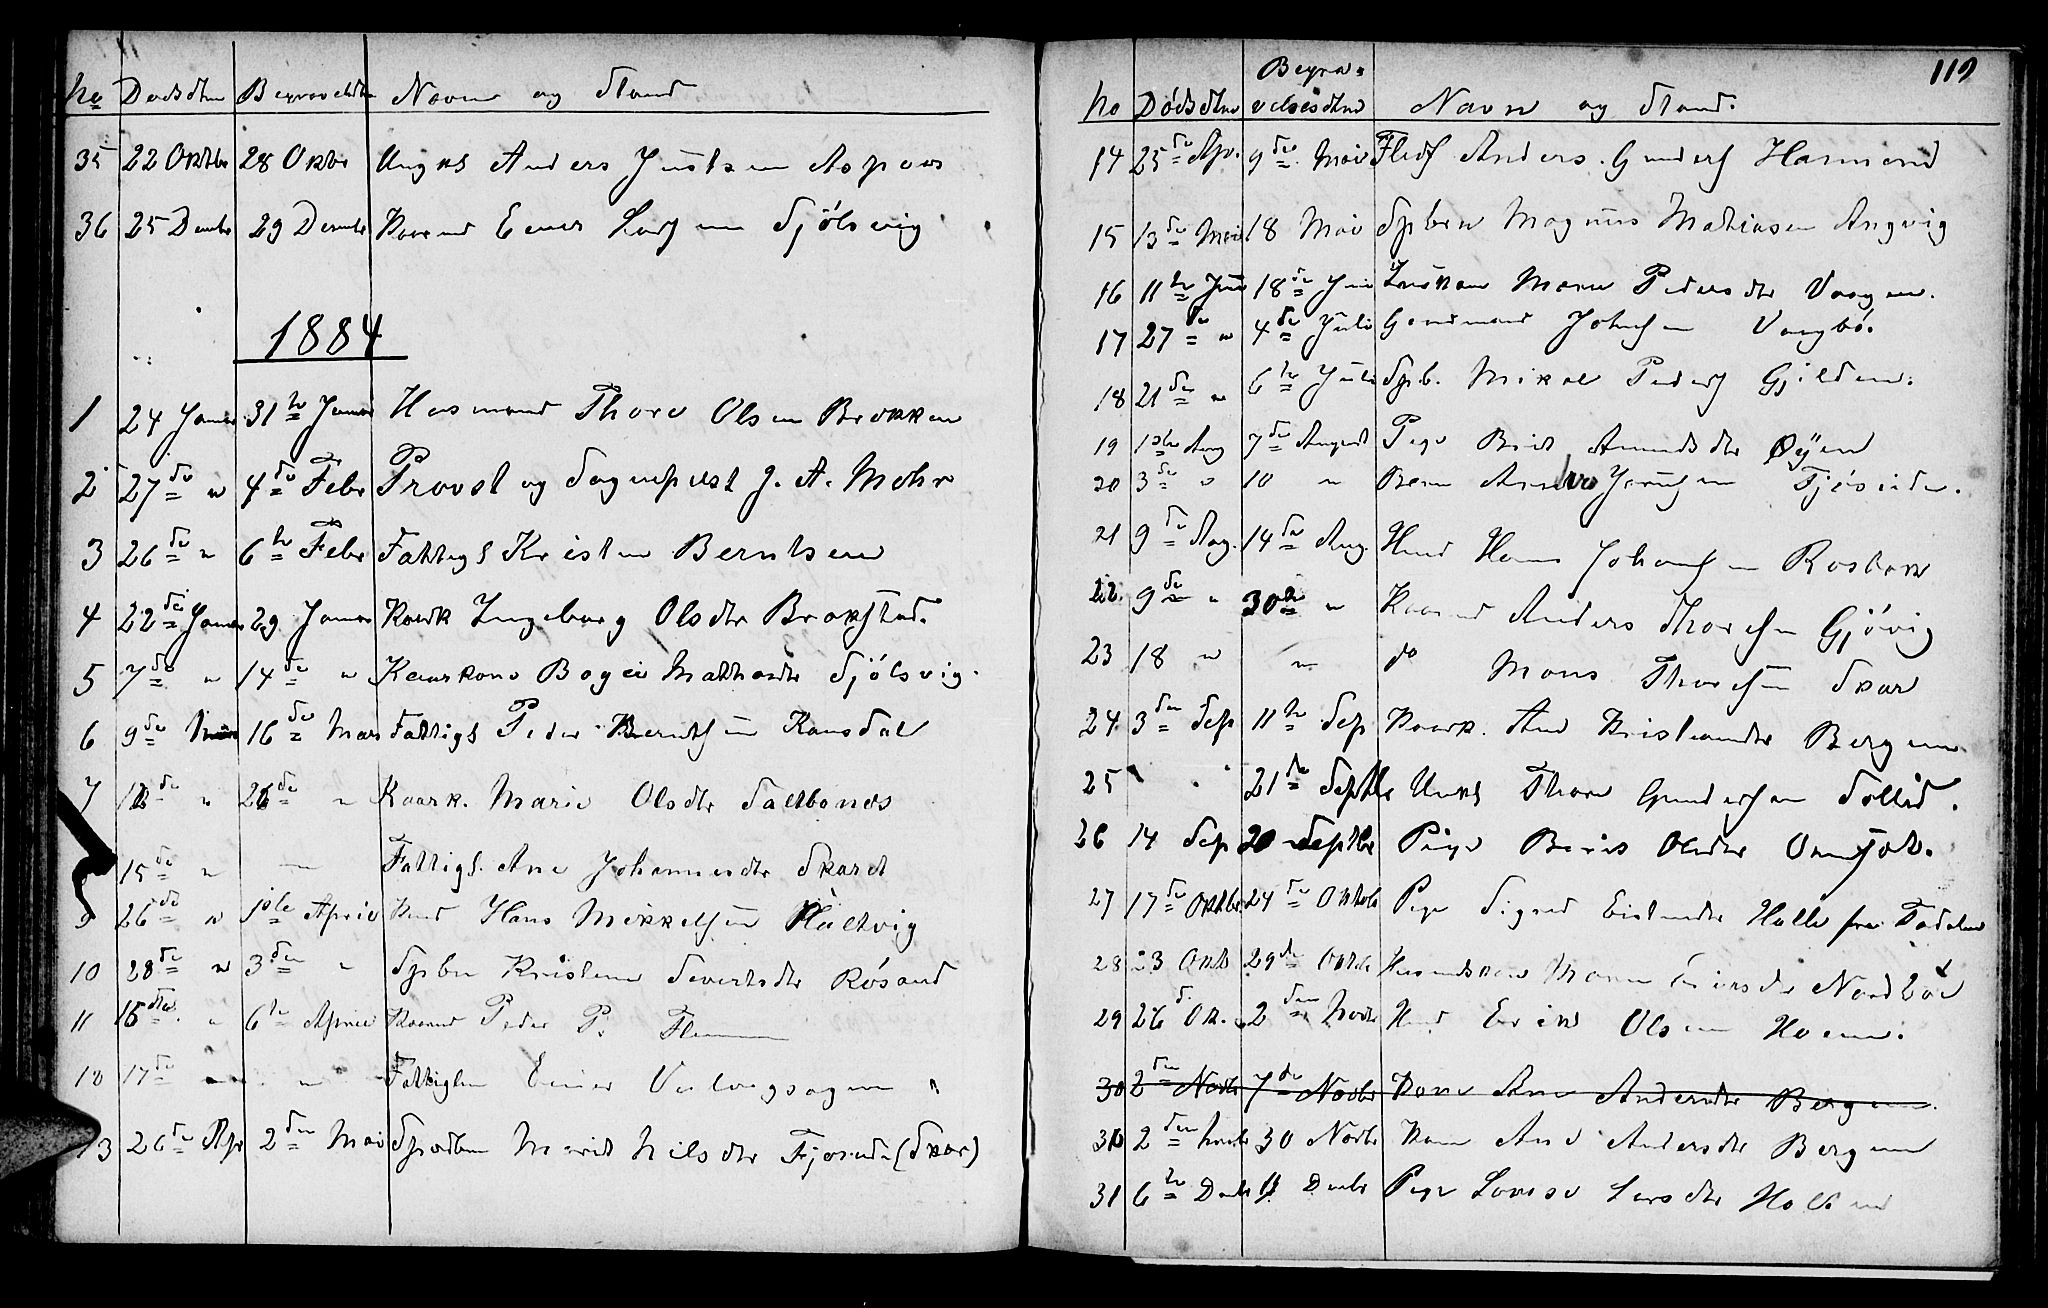 No Dødsdtm Begravelsdtm Navn og Stand
35 22 Oktbr 28 Oktbr Ungks Anders Justsen Aspaas
36 25 Dembr 29 Dembr Kaarmd Einer Larssen Sjølsvig
1884
1 24 Januar 31te Januar Husmand Thore Olsen Brokken
2 27de " 4de Febr Provst og Sognepræst J. A. Mohr
3 26de " 6te Febr Fattigl Kristen Berntsen
4 22de Januar 29 Januar Kaark Ingeborg Olsdtr Brokstad.
5 7de " 14de " Kaarkone Mathisdtr Sjølsvig.
6 9de Mars 16de Mars Fattigl Peder Berntsen Kansdal
7 12de " 26de " Kaark. Marie Olsdtr Saltbones
15de " — Fattigl. Ane Johannesdtr Skaret
9 26de " 1ste April Kmd Hans Mikkelsen Hultvig
10 28de " 3de " Spbn Kristine Sivertsdtr Røsand
11 15de " 6te April Kaarmd Peder P. Flemmen
12 17de " " Fattiglm Einer
13 26de Apr 2den Mai Spædbn Marit Nilsdtr Fjøseide (Skar)
119
No Dødsdtm Begravelsesdtm Navn og Stand.
14 25de Apr. 9de Mai Anders Gunders Hammond
15 13de Mai 18 Mai Spbrn Magnus Mathiasen Angvig
16 11te Jun 18de Jun Maren Pedersdtr Vaagen.
17 27de " 4de Juli Gaardmand Johnsen Vaagbø.
18 21de " 6te Juli Spb. Mikal Peders Gjilden.
19 1ste Aug 7de August Pige Brit Amundsdtr Øyen
20 3de " 10 " Barn Jensen Fjøseide.
21 9de Aug. 14de Aug. Kmd Hans Johansen Rosbak
22. 9de " 30te " Kaarmd Anders Thoresen Gjøvig
23 18 " " do Mons Thoresen Skar
24 3den Sep 11te Sep Kaark. Ane Kristiansdtr Bergem
25 21de Septbr Ungks Thore Gundersen Sollid.
26 14 Sep 20 Septbr Pige Beret Olsdtr
27 17de Oktbr 24de Oktob Pige Sigrid Eistensdtr Halle fra Todalen
28 23 Okt 29de Oktb Husmdskone Maren Nordbø
29 26d. Ok. 2den Novbr Kmd Erik Olsen Hoem.
30 2den Novbr 7de Novbr Kone Ane Andersdtr Bergem.
30 2den Novbr 30 Novbr Kone Ane Andersdtr Bergem
31 6te Debr 11 Decbr Pige Lovise Larsdtr Holten